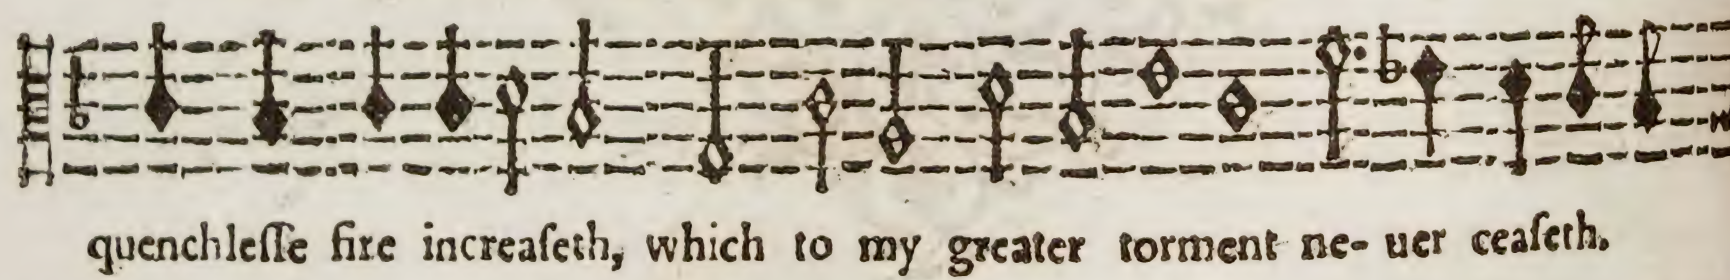 quenchleſſe fire increaſeth, which to my greater torment ne- uer ceaſeth.